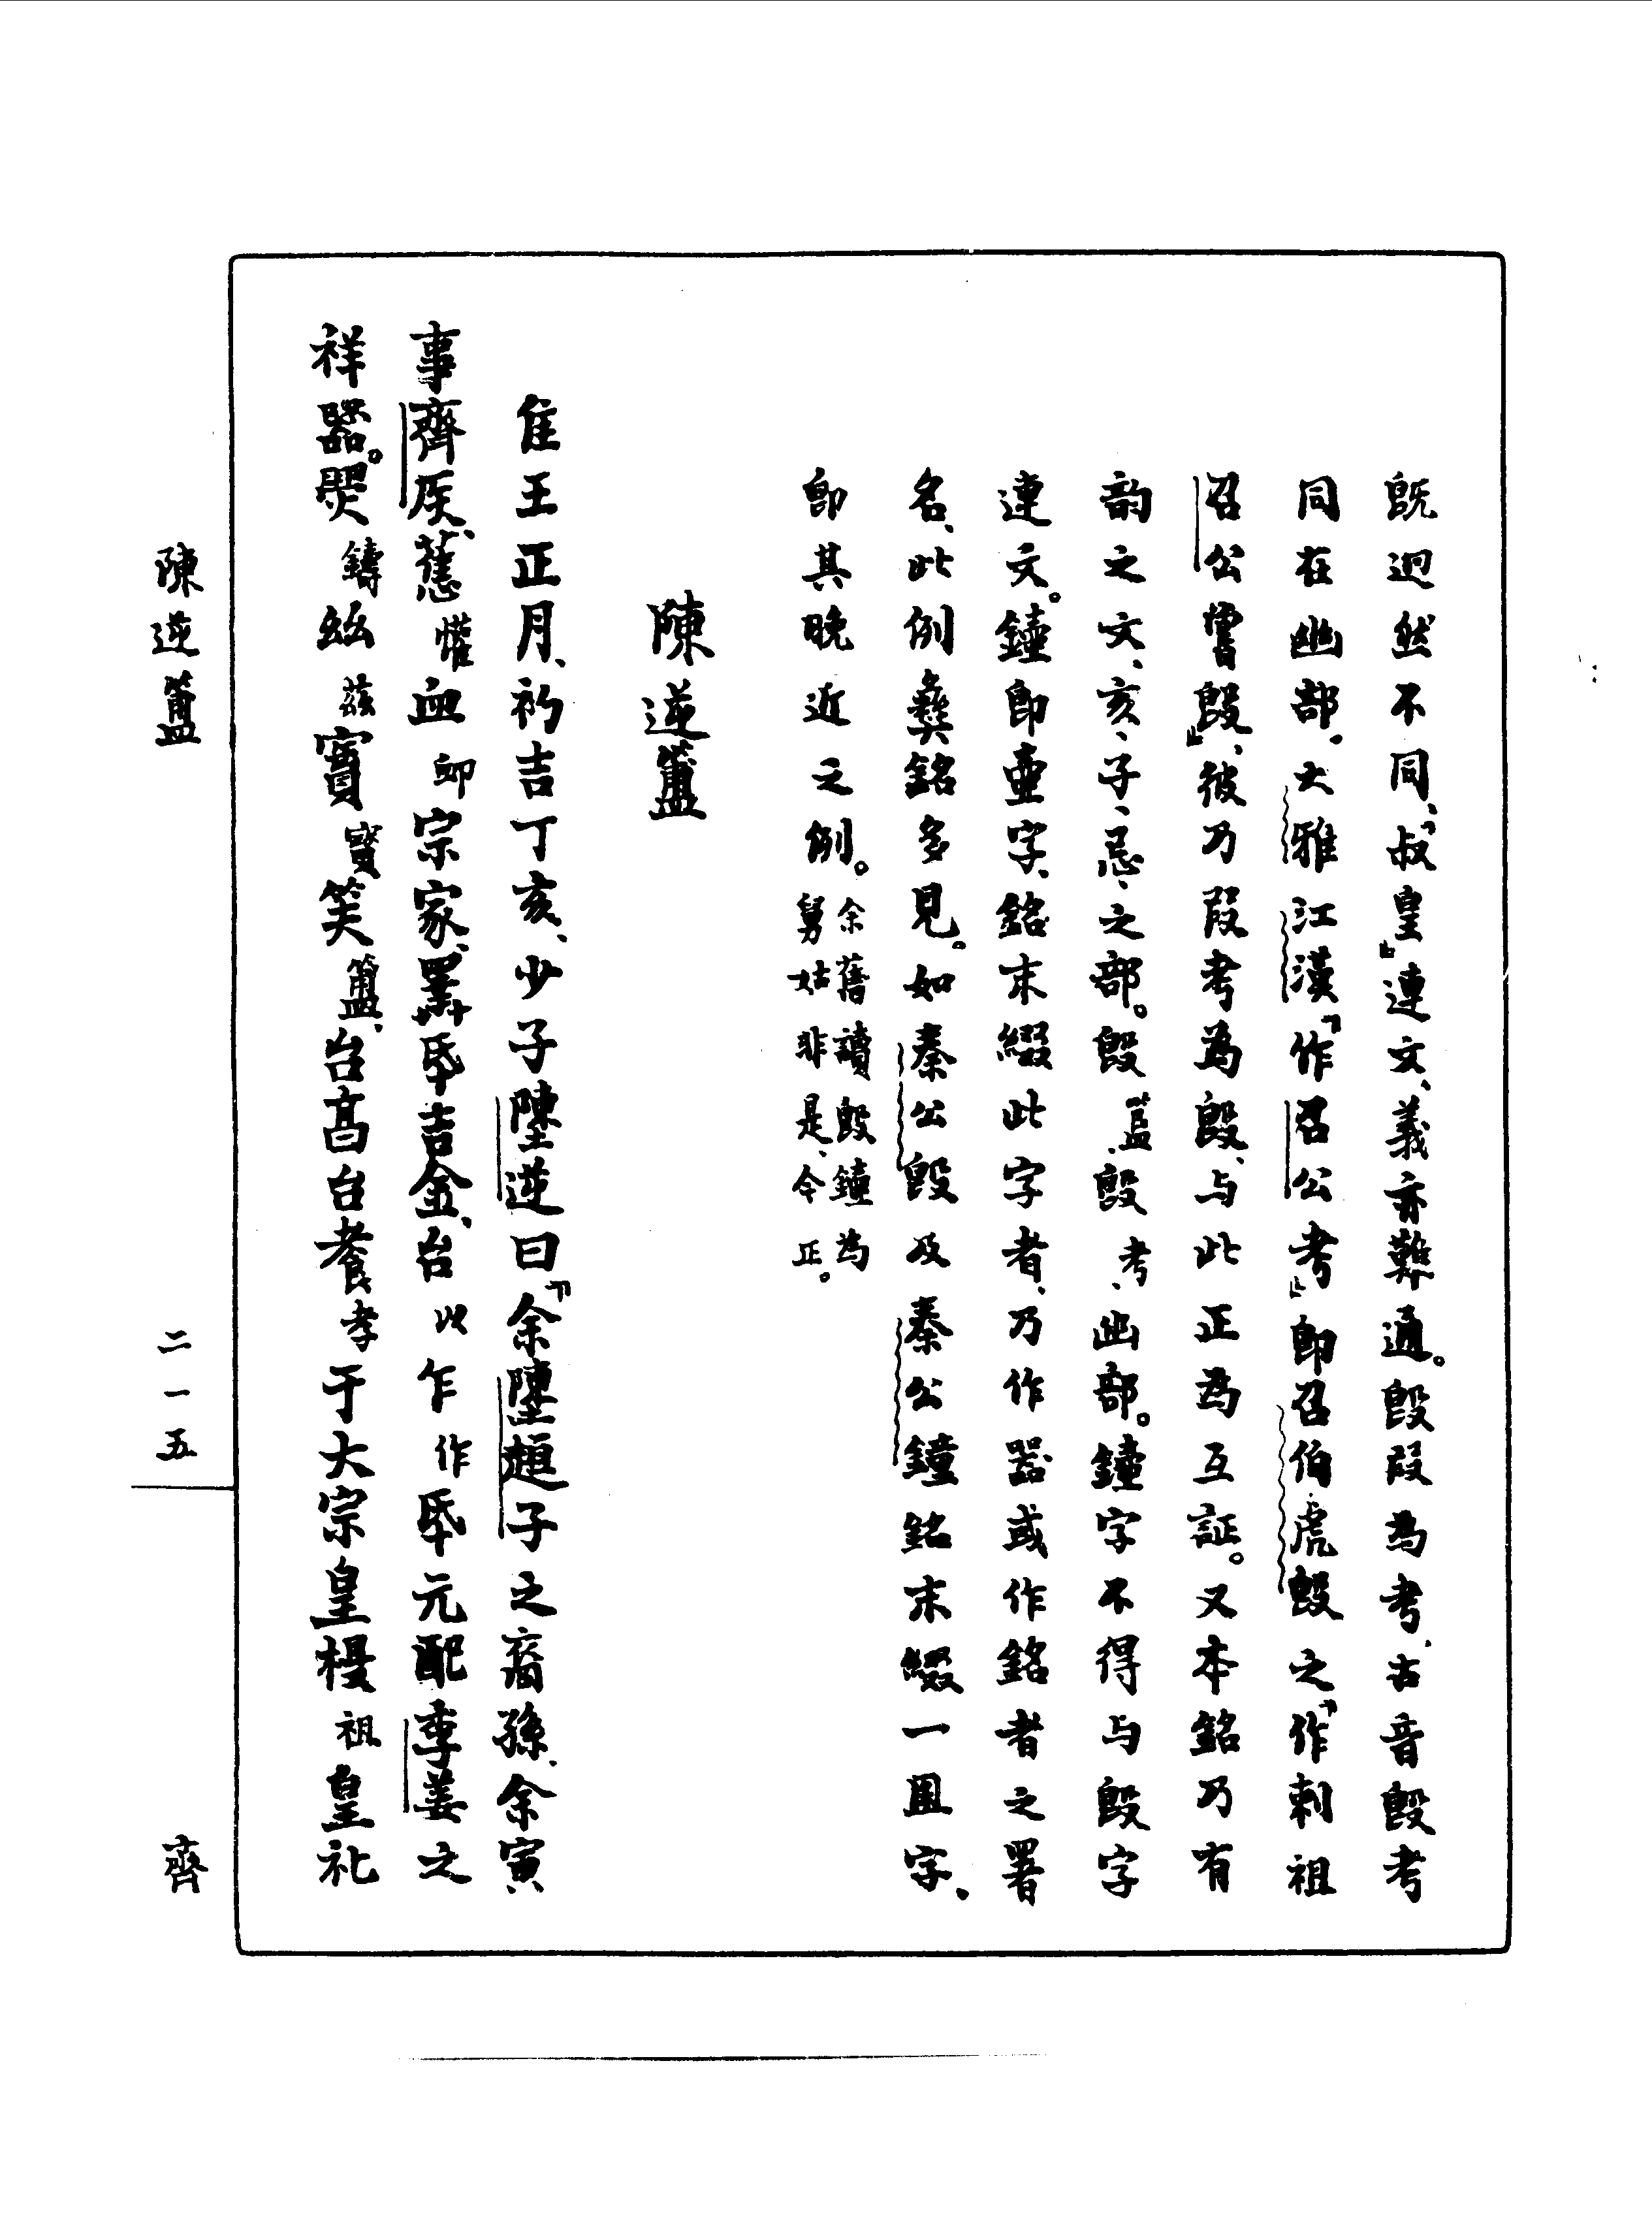 既迥然不同、「叔皇」連文、義亦難通。𣪘叚為考、古音𣪘考
同在幽部。大雅江漢「作召公考」即召伯虎𣪘之「作剌祖
召公嘗𣪘」、彼乃叚考為𣪘、与此正為互証。又本銘乃有
韵之文、亥、子、忌、之部。𣪘、𣪘考、幽部。鐘字不得与𣪘字
連文。鐘即壷字、銘末綴此字者、乃作器或作銘者之署
名、此例彝銘多見。如秦公𣪘及秦公鐘銘末綴一字、
即其晚近之例。余舊讀𣪘鐘為
舅姑非是、今正。
陳逆簠
隹王正月、初吉丁亥、少子陳逆曰、「余陳趄子之裔孫、余寅
事齊侯、懽血卹宗家、吉金、台以乍作元配季姜之
祥器。鑄丝茲寶寳笑簠、台亯台養孝于大宗皇祖皇妣
陳逆簠
二一五
齊